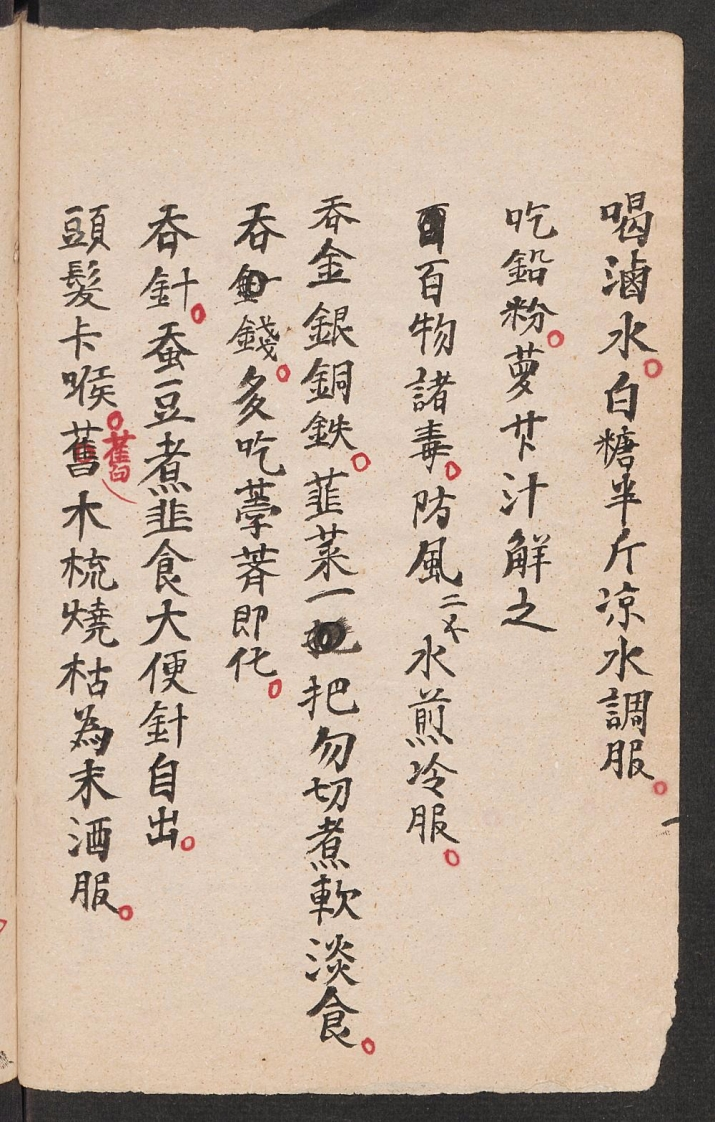 喝滷水。白糖半斤凉水調服。
吃鉛粉。萝卜汁解之
百物諸毒。防風二不水煎冷服。
吞金銀銅鉄。韮菜一把勿切煮軟淡食。
吞錢。多吃荸薺即化。
吞針。蚕豆煮韭食大便針自出。
頭髮卡喉。舊舊木梳燒枯為末酒服。